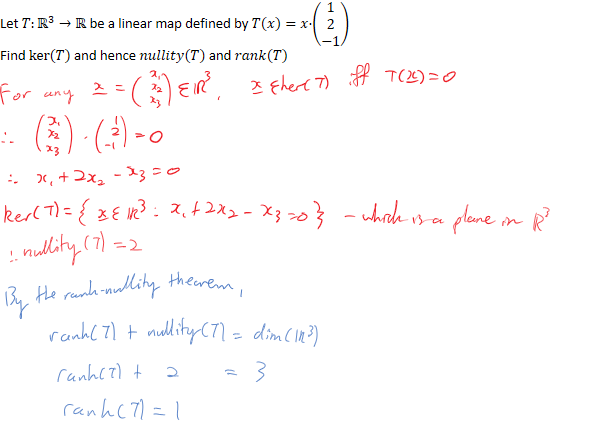 Let T: ℝ³ → ℝ be a linear map defined by T(x) = x·(1 2 −1)
Find ker(T) and hence nullity(T) and rank(T)
For any x = (x₁ x₂ x₃) ∈ ℝ³, x ∈ ker(T) iff T(x) = 0
∴ (x₁ x₂ x₃) · (1 2 −1) = 0
∴ x₁ + 2x₂ − x₃ = 0
ker(T) = { x ∈ ℝ³ : x₁ + 2x₂ − x₃ = 0 } – which is a plane in ℝ³
∴ nullity(T) = 2
By the rank-nullity theorem,
rank(T) + nullity(T) = dim(ℝ³)
rank(T) + 2 = 3
rank(T) = 1